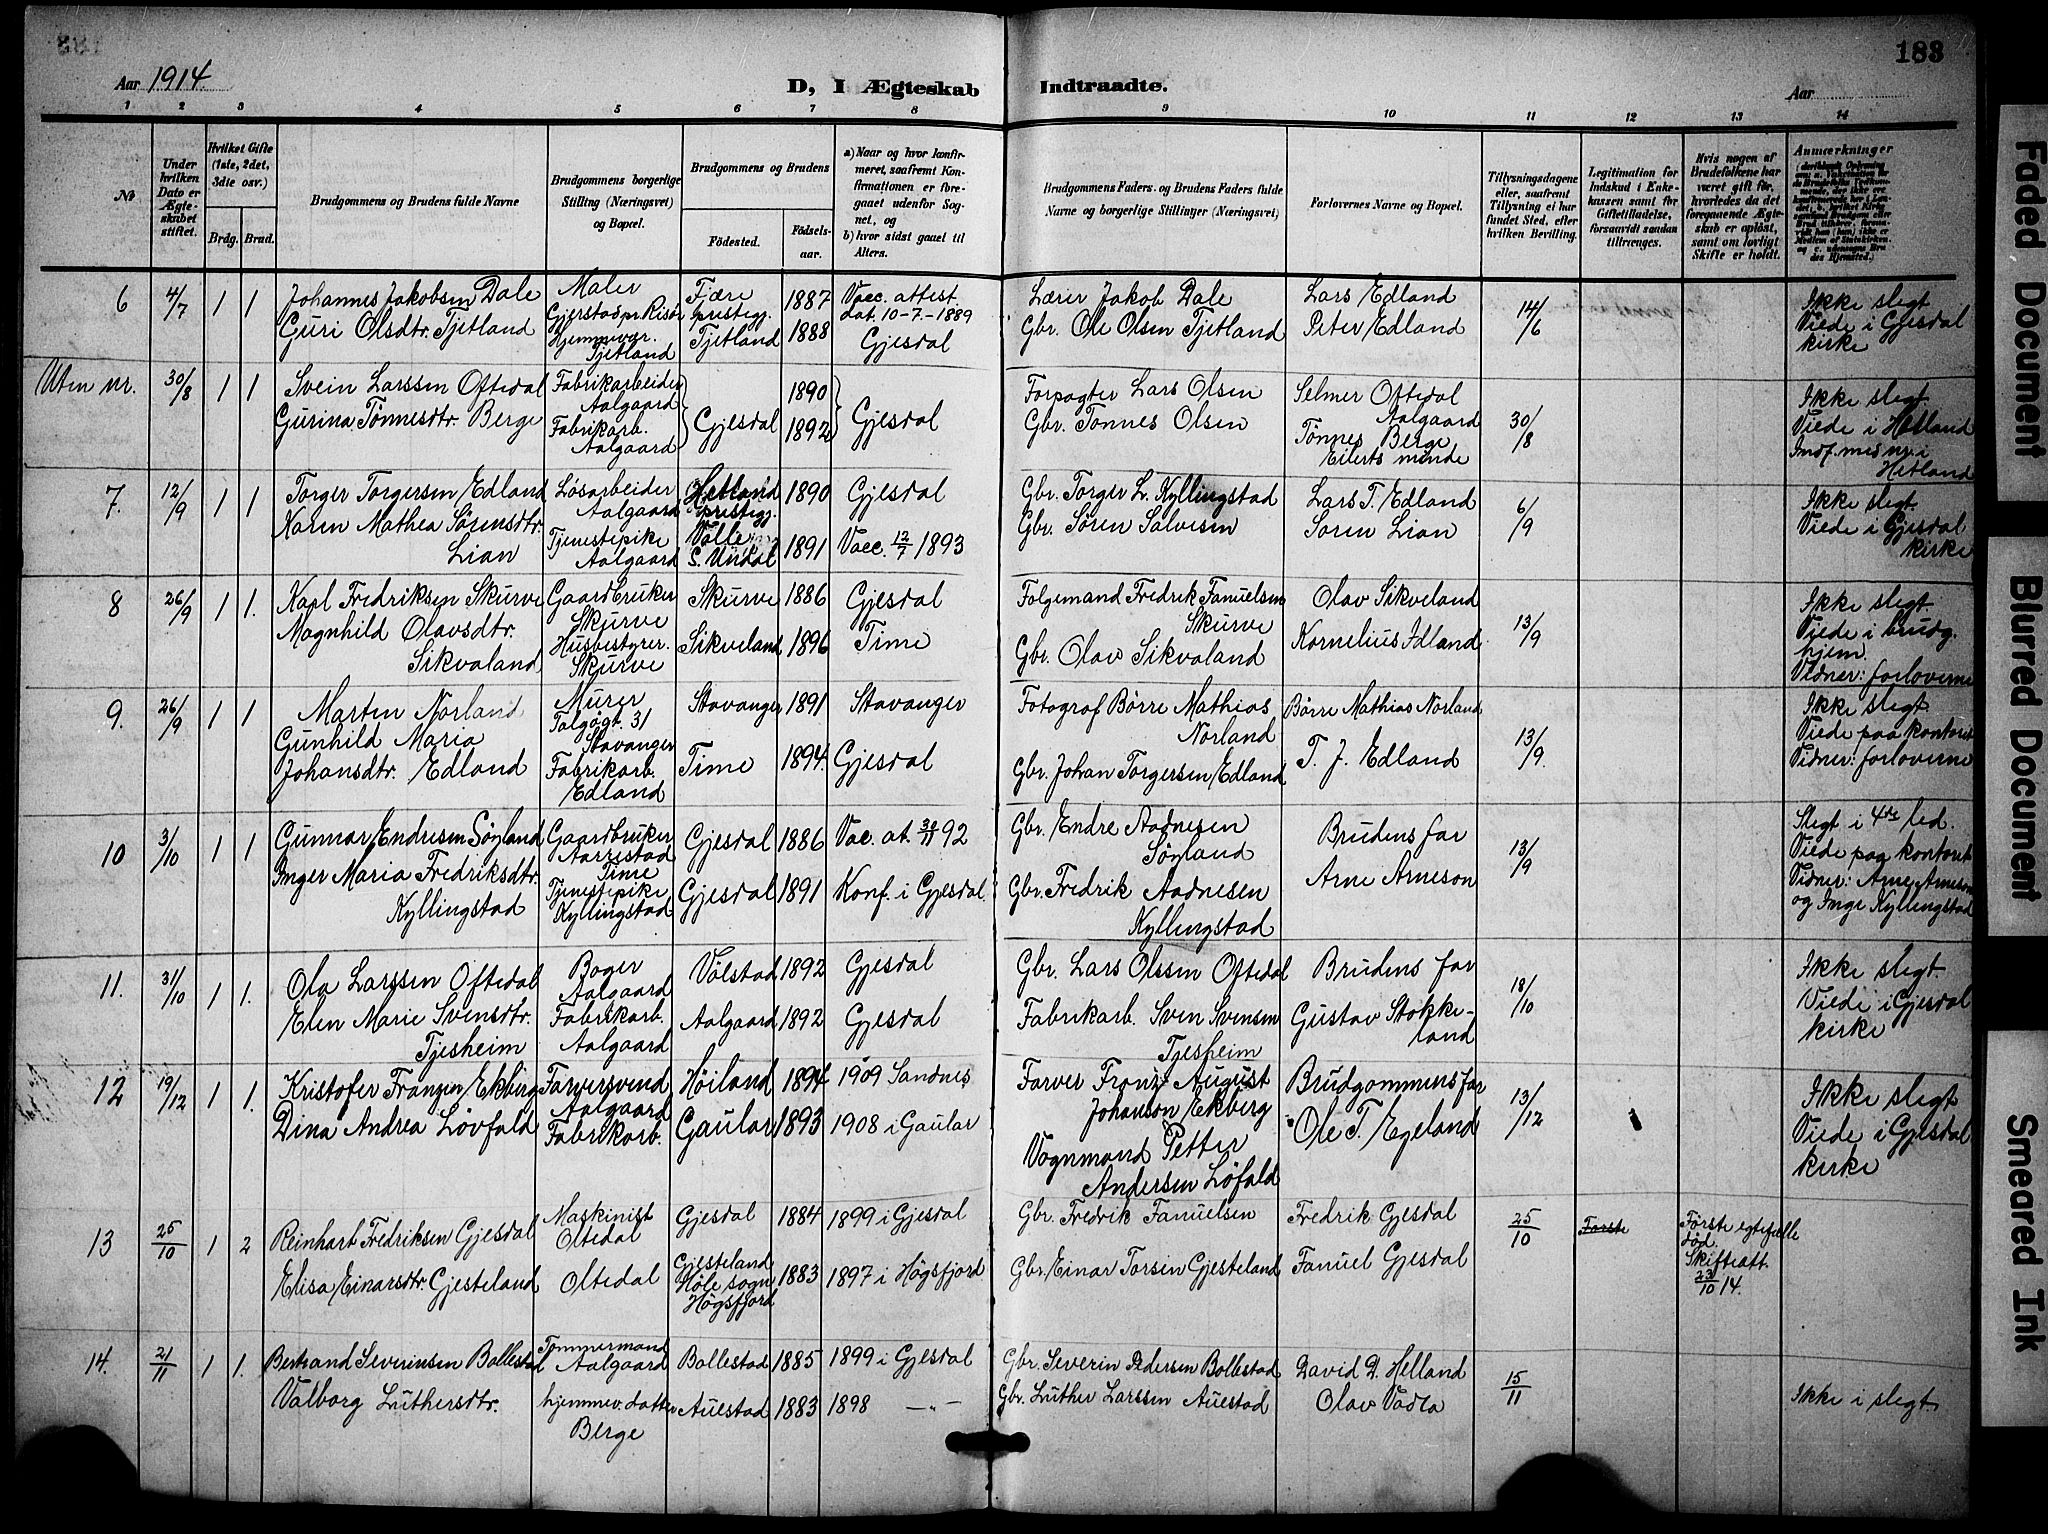 183
Aar 1914.
D, I Ægteskab Indtraadte.
Aar
1 2 3 4 5 6 7 8 9 10 11 12 13 14
№
Under hvilken Dato er Ægteskabet stiftet.
Hvilket Gifte (1ste, 2det, 3die osv.)
Brdg. Brud.
Brudgommens og Brudens fulde Navne
Brudgommens borgerlige Stilling (Næringsvei) og Bopæl.
Brudgommens og Brudens
Födested.
Födselsaar.
a) Naar og hvor konfirmeret, saafremt Konfirmationen er foregaaet udenfor Sognet, og
b) hvor sidst gaaet til Alters.
Brudgommens Faders. og Brudens Faders fulde Navne og borgerlige Stillinger (Næringsvei)
Forlovernes Navne og Bopæl.
Tillysningsdagene eller, saafremt Tillysning ei har fundet Sted, efter hvilken Bevilling.
Legitimation for Indskud i Enkekassen samt for Giftetilladelse, forsaavidt saadan tiltrænges.
Hvis nogen af Brudefolkene har været gift før, hvorledes da det foregaaende Ægteskab er opløst, samt om lovligt Skifte er holdt.
Anmærkninger
6 4/7 1 1 Johannes Jakobsen Dale Maler Gjerstad pr. Risør Fjære prestegj. 1887 Vacc. attest dat. 10-7.-1889 Lærer Jakob Dale Lars Edland 14/6 Ikke slegt
Guri Olsdtr. Tjetland Hjemmevær. Tjetland Tjetland 1888 Gjesdal Gbr. Ole Olsen Tjetland Peter Edland Viede i Gjesdal kirke
Uten nr. 30/8 1 1 Svein Larssen Oftedal Fabrikarbeider Aalgaard 1890 Forpagter Lars Olsen Selmer Oftedal Aalgaard 30/8 Ikke slegt
Gurina Tønnesdtr. Berge Fabrikarb. Aalgaard Gjesdal 1892 Gjesdal Gbr. Tønnes Olsen Tønnes Berge Eilerts minde Viede i Hetland Indf. med nr. i Hetland
7. 12/9 1 1 Torger Torgersen Edland Løsarbeider Aalgaard Hetland prestegj. 1890 Gjesdal Gbr. Torger L. Kyllingstad Lars T. Edland 6/9 Ikke slegt
Karen Mathea Sørensdtr. Lian Tjenestepike Aalgaard Valle S. Undal 1891 Vacc. 12/7 1893 Gbr. Søren Salvesen Soren Lian Viede i Gjesdal kirke
8 26/9 1 1. Karl Fredriksen Skurve Gaardbruker Skurve Skurve 1886 Gjesdal Folgemand Fredrik Fanuelsen Skurve Olav Sikveland 13/9 Ikke slegt
Magnhild Olavsdtr. Sikvaland Husbestyrer. Skurve Sikveland 1896 Time Gbr. Olav Sikvaland Kornelius Idland Viede i brudg. hjem. Vidner: forloverne
9. 26/9 1 1 Marten Norland Murer Talgøgt. 31 Stavanger Stavanger 1891 Stavanger Fotograf Børre Mathias Norland Børre Mathias Norland 13/9. Ikke slegt
Gunhild Maria Johansdtr. Edland Fabrikarb. Edland Time 1894. Gjesdal Gbr. Johan Torgersen Edland T. J. Edland Viede paa kontoret Vidner: forloverne
10 3/10 1 1 Gunnar Endresen Søyland Gaardbruker Aarrestad Time Gjesdal 1886 Vac. at. 30/11 92 Gbr. Endre Aadnesen Søyland Brudens far 13/9 Slegt i 4de led.
Inger Maria Fredriksdtr. Kyllingstad Tjenestepike Kyllingstad Gjesdal 1891 Konf. i Gjesdal Gbr. Fredrik Aadnesen Kyllingstad Arne Arneson Viede paa kontoret Vidner: Arne Arneson og Inge Kyllingstad
11. 31/10 1 1. Ola Larssen Oftedal Bøger Aalgaard Vølstad 1892 Gjesdal Gbr. Lars Olssen Oftedal Brudens far 18/10 Ikke slegt
Elen Marie Svensdtr. Tjesheim Fabrikarb. Aalgaard Aalgaard 1892 Gjesdal Fabrikarb. Sven Svensen Tjesheim Gustav Stokkeland Viede i Gjesdal kirke
12 19/12 1 1. Kristofer Franzen Ekberg Farversvend Aalgaard Høiland 1894 1909 Sandnes Farver Franz August Johanson Ekberg Brudgommens far 13/12 Ikke slegt
Dina Andrea Løvfald Fabrikarb. Gaular 1893 1908 i Gaular Vognmand Petter Andersen Løfald Ole T. Egeland Viede i Gjesdal kirke
13 25/10 1 2 Reinhart Fredriksen Gjesdal Maskinist Oltedal Gjesdal 1884 1899 i Gjesdal Gbr. Fredrik Fanuelsen Fredrik Gjesdal 25/10 Første Første egtefælle død. Skifteatt. 23/10 14.
Elisa Einarsdtr. Gjesteland Oltedal Gjesteland Høle sogn Høgsfjord 1883 1897 i Høgsfjord Gbr. Einar Torsen Gjesteland Fanuel Gjesdal
14. 21/11 1 1. Bertrand Severinsen Bollestad Tømmermand Aalgaard Bollestad 1885 1899 i Gjesdal Gbr. Severin Pedersen Bollestad David D. Helland 15/11 Ikke i slegt
Valborg Luthersdtr. hjemmev. datter Berge Auestad 1883 1898 —"— Gbr. Luther Larssen Auestad Olav Vadla
Faded Document
Blurred Document
Smeared Ink